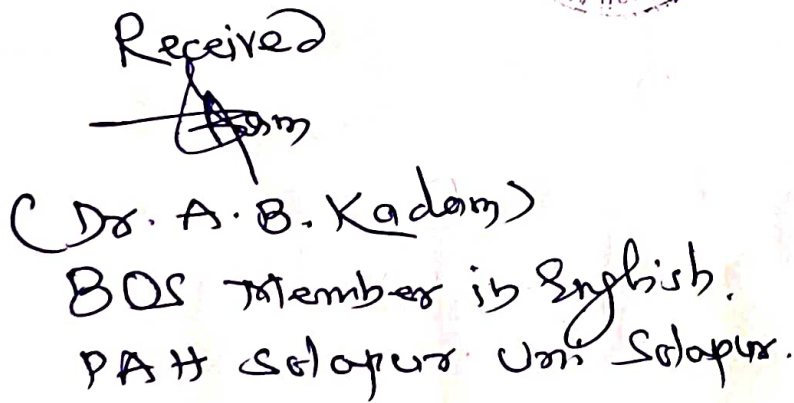 Received
(Dr. A. B. Kadam)
BOS Member in English.
PAH Solapur Uni Solapur.